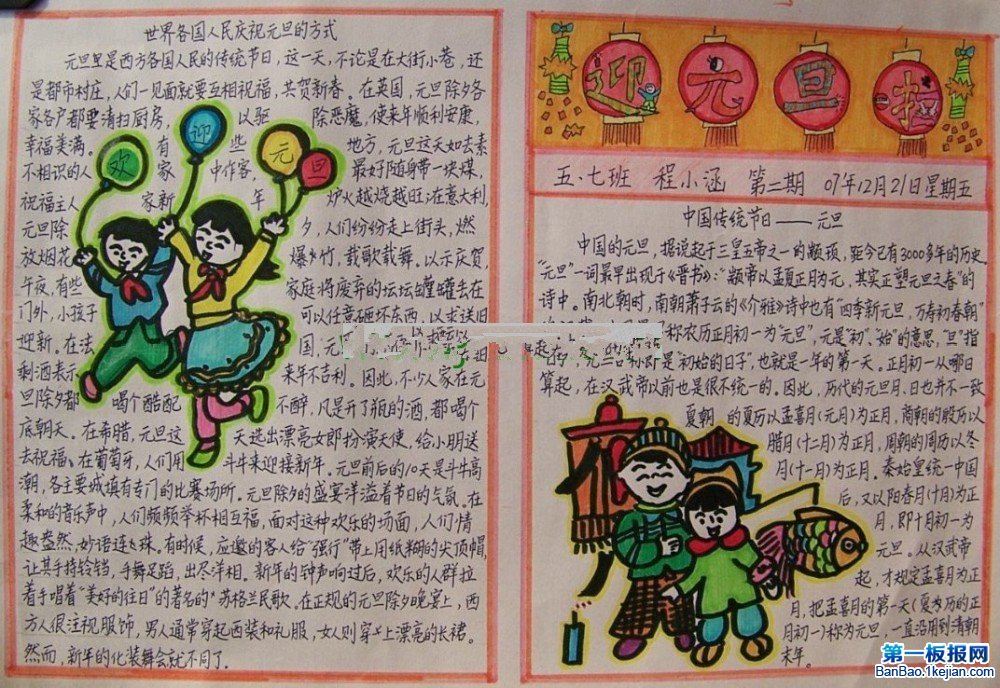 世界各国人民庆祝元旦的方式
元旦里是西方各国人民的传统节日，这一天，不论是在大街小巷，还
是都市村庄，人们一见面就要互相祝福，共贺新春。在英国，元旦除夕各
家各户都要清扫厨房，以驱除恶魔，使来年顺利安康，
幸福美满。有些地方，元旦这天如去素
不相识的人家中作客，最好随身带一块煤，
祝福主人家新年炉火越烧越旺；在意大利，
元旦除夕，人们纷纷走上街头，燃
放烟花爆竹，载歌载舞。以示庆贺
午夜，有些家庭将废弃的坛坛罐罐丢在
门外，小孩子可以任意砸坏东西，以求送旧
迎新。在法国，元
剩酒表示来年不吉利。因此，不少人家在元
旦除夕都喝个酩酊不醉，凡是开了瓶的酒，都喝个
底朝天。在希腊，元旦这天选出漂亮女郎扮演天使，给小朋送
去祝福。在葡萄牙，人们用斗牛来迎接新年。元旦前后的10天是斗牛高
潮，各主要城填有专门的比赛场所。元旦除夕的盛宴洋溢着节日的气氛。在
柔和的音乐声中，人们频频举杯相互福，面对这种欢乐的场面，人们情
趣盎然，妙语连珠。有时候，应邀的客人给"强行"带上用纸糊的尖顶帽，
让其手持铃铛，手舞足蹈，出尽洋相。新年的钟声响过后，欢乐的人群拉
着手唱着"美好的往日"的著名的苏格兰民歌。在正规的元旦除夕晚宴上，西
方人很注视服饰，男人通常穿起西装和礼服，女人则穿上漂亮的长裙。
然而，新年的化装舞会就不同了。
欢迎元旦
迎元旦
五·七班 程小涵 第二期 07年12月21日星期五
中国传统节日——元旦
中国的元旦，据说起于三皇五帝之一的颛顼，距今已有3000多年的历史
"元旦"一词最早出现于《晋书》："颛帝以孟夏正月为元，其实正塑元旦之春"的
诗中。南北朝时，南朝萧子云的《介雅》诗中也有"四季新元旦，万寿初春朝"
称农历正月初一为"元旦"，元是"初"、"始"的意思，"旦"指
是"初始的日子"，也就是一年的第一天。正月初一从哪日
算起，在汉武帝以前也是很不统一的。因此，历代的元旦月、日也并不一致
夏朝的夏历以孟喜月（元月）为正月，商朝的殷历以
腊月（十二月）为正月，周朝的周历以冬
月（十一月）为正月。秦始皇统一中国
后，又以阳春月（十月）为正
月，即十月初一为
元旦。从汉武帝
起，才规定孟喜月为正
月，把孟喜月的第一天（夏历的正
月初一）称为元旦，一直沿用到清朝
末年。
第一板报网
BanBao.1kejian.com